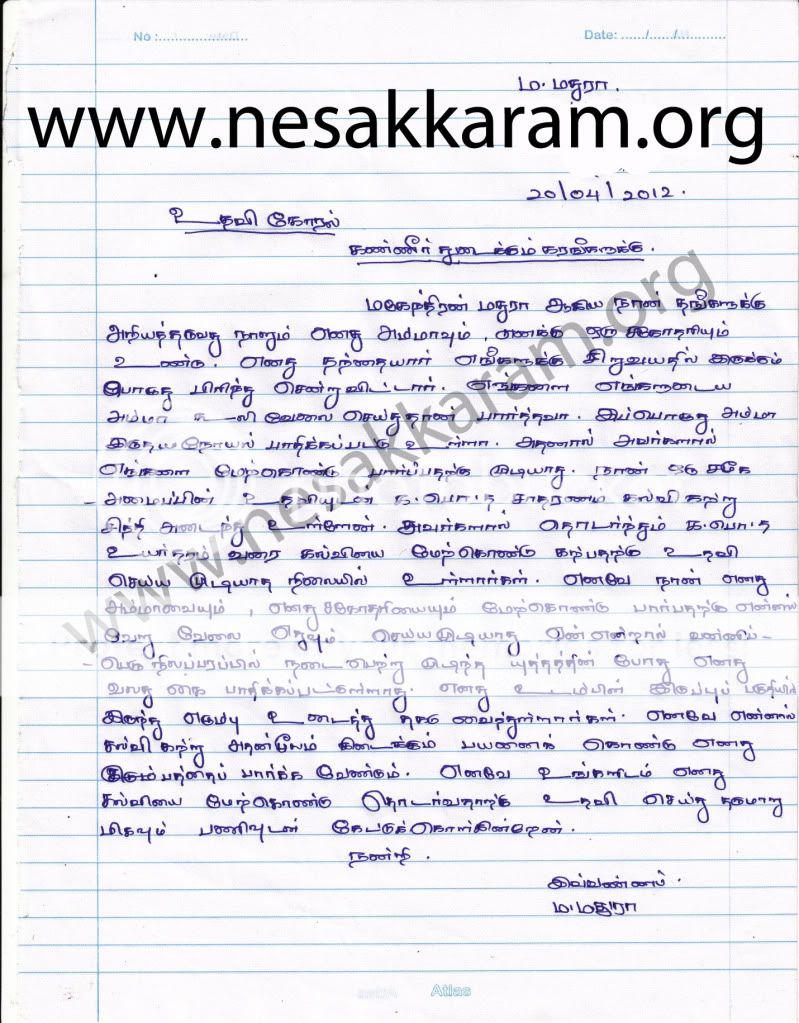 No :........................ Date: ....../....../..........
ம. மதுரா.
www.nesakkaram.org
20/04/2012.
உதவி கோரல்
கண்ணீர் துடைக்கும் கரங்களுக்கு.
மகேந்திரன் மதுரா ஆகிய நான் தங்களுக்கு
அறியத்தருவது நானும் எனது அம்மாவும், எனக்கு ஒரு சகோதரியும்
உண்டு. எனது தந்தையார் எங்களுக்கு சிறுவயதில் இருக்கும்
போது பிரிந்து சென்றுவிட்டார். எங்களை எங்களுடைய
அம்மா கூலி வேலை செய்துதான் பார்த்தவா. இப்பொழுது அம்மா
இருதய நோயால் பாதிக்கப்பட்டு உள்ளா. அதனால் அவர்களால்
எங்களை மேற்கொண்டு பார்ப்பதற்கு முடியாது. நான் ஒரு
அமைப்பின் உதவியுடன் க.பொ.த சாதரணம் கல்வி கற்று
சித்தி அடைந்து உள்ளேன். அவர்களால் தொடர்ந்தும் க.பொ.த
உயர்தரம் வரை கல்வியை மேற்கொண்டு கற்பதற்கு உதவி
செய்ய முடியாத நிலையில் உள்ளார்கள். எனவே நான் எனது
அம்மாவையும், எனது சகோதரியையும் மேற்கொண்டு பார்பதற்கு என்னால்
வேறு வேலை எதுவும் செய்ய முடியாது ஏன் என்றால் வன்னிப்-
- பெரு நிலப்பரப்பில் நடைபெற்று முடிந்த யுத்தத்தின் போது எனது
வலது கை பாதிக்கப்பட்டுள்ளது. எனது உடம்பின் இடுப்புப் பகுதியில்
இருந்து எழும்பு உடைத்து தகடு வைத்துள்ளார்கள். எனவே என்னால்
கல்வி கற்று அதன்மூலம் கிடைக்கும் பயனைக் கொண்டு எனது
குடும்பத்தைப் பார்க்க வேண்டும். எனவே உங்களிடம் எனது
கல்வியை மேற்கொண்டு தொடர்வதற்கு உதவி செய்து தருமாறு
மிகவும் பணிவுடன் கேட்டுக்கொள்கின்றேன்.
நன்றி.
இவ்வண்ணம்.
ம.மதுரா
www.nesakkaram.org
Atlas